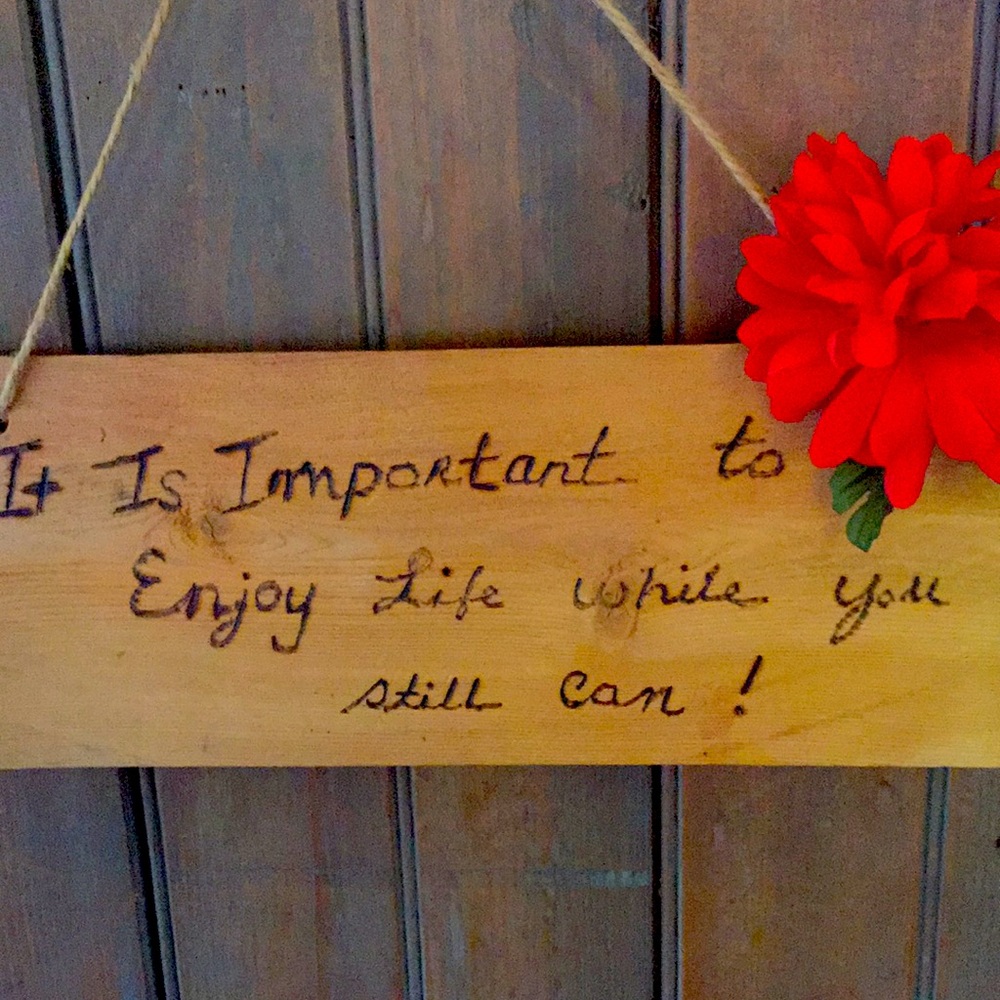 It Is Important to
Enjoy Life while you
still can !